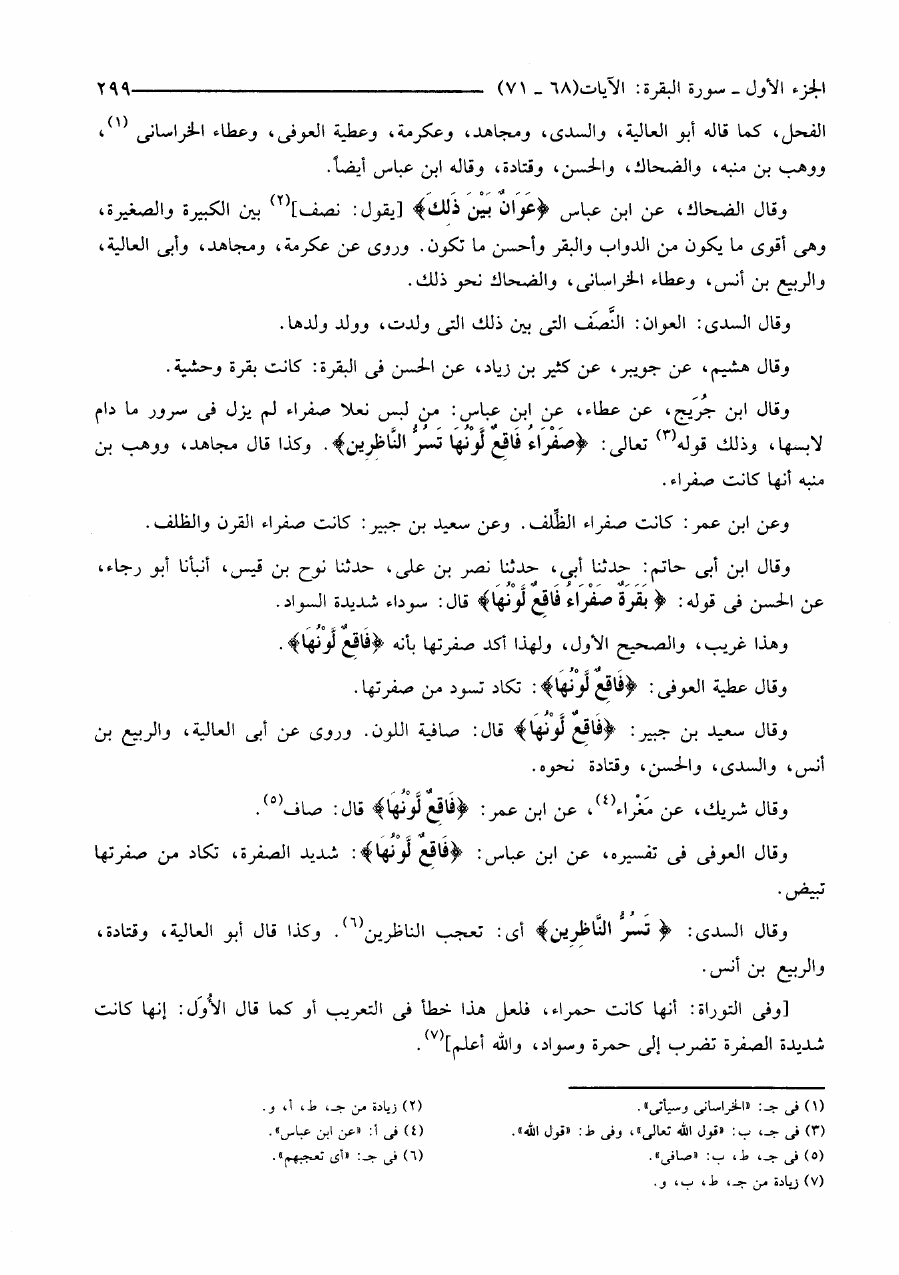 الجزء الأول ـ سورة البقرة: الآيات(٦٨ ـ ٧١) ٢٩٩
الفحل، كما قاله أبو العالية، والسدى، ومجاهد، وعكرمة، وعطية العوفى، وعطاء الخراسانى (١)،
ووهب بن منبه، والضحاك، والحسن، وقتادة، وقاله ابن عباس أيضاً.
وقال الضحاك، عن ابن عباس ﴿عَوَانٌ بَيْنَ ذَلِكَ﴾ [يقول: نصف](٢) بين الكبيرة والصغيرة،
وهى أقوى ما يكون من الدواب والبقر وأحسن ما تكون. وروى عن عكرمة، ومجاهد، وأبى العالية،
والربيع بن أنس، وعطاء الخراسانى، والضحاك نحو ذلك.
وقال السدى: العوان: النَّصَف التى بين ذلك التى ولدت، وولد ولدها.
وقال هشيم، عن جويبر، عن كثير بن زياد، عن الحسن فى البقرة: كانت بقرة وحشية.
وقال ابن جُرَيج، عن عطاء، عن ابن عباس: من لبس نعلا صفراء لم يزل فى سرور ما دام
لابسها، وذلك قوله(٣) تعالى: ﴿صَفْرَاءُ فَاقِعٌ لَّوْنُهَا تَسُرُّ النَّاظِرِين﴾. وكذا قال مجاهد، ووهب بن
منبه أنها كانت صفراء.
وعن ابن عمر: كانت صفراء الظِّلف. وعن سعيد بن جبير: كانت صفراء القرن والظلف.
وقال ابن أبى حاتم: حدثنا أبى، حدثنا نصر بن على، حدثنا نوح بن قيس، أنبأنا أبو رجاء،
عن الحسن فى قوله: ﴿ بَقَرَةٌ صَفْرَاءُ فَاقِعٌ لَّوْنُهَا﴾ قال: سوداء شديدة السواد.
وهذا غريب، والصحيح الأول، ولهذا أكد صفرتها بأنه ﴿فَاقِعٌ لَّوْنُهَا﴾.
وقال عطية العوفى: ﴿فَاقِعٌ لَّوْنُهَا﴾: تكاد تسود من صفرتها.
وقال سعيد بن جبير: ﴿فَاقِعٌ لَّوْنُهَا﴾ قال: صافية اللون. وروى عن أبى العالية، والربيع بن
أنس، والسدى، والحسن، وقتادة نحوه.
وقال شريك، عن مَغْراء(٤)، عن ابن عمر: ﴿فَاقِعٌ لَّوْنُهَا﴾ قال: صاف(٥).
وقال العوفى فى تفسيره، عن ابن عباس: ﴿فَاقِعٌ لَّوْنُهَا﴾: شديد الصفرة، تكاد من صفرتها
تبيض.
وقال السدى: ﴿ تَسُرُّ النَّاظِرِين﴾ أى: تعجب الناظرين(٦). وكذا قال أبو العالية، وقتادة،
والربيع بن أنس.
[وفى التوراة: أنها كانت حمراء، فلعل هذا خطأ فى التعريب أو كما قال الأُوَل: إنها كانت
شديدة الصفرة تضرب إلى حمرة وسواد، والله أعلم](٧).
(١) فى جـ: «الخراسانى وسيأتى». (٢) زيادة من جـ، ط، أ، و.
(٣) فى جـ، ب: «قول الله تعالى»، وفى ط: «قول الله». (٤) فى أ: «عن ابن عباس».
(٥) فى جـ، ط، ب: «صافى». (٦) فى جـ: «أى تعجبهم».
(٧) زيادة من جـ، ط، ب، و.